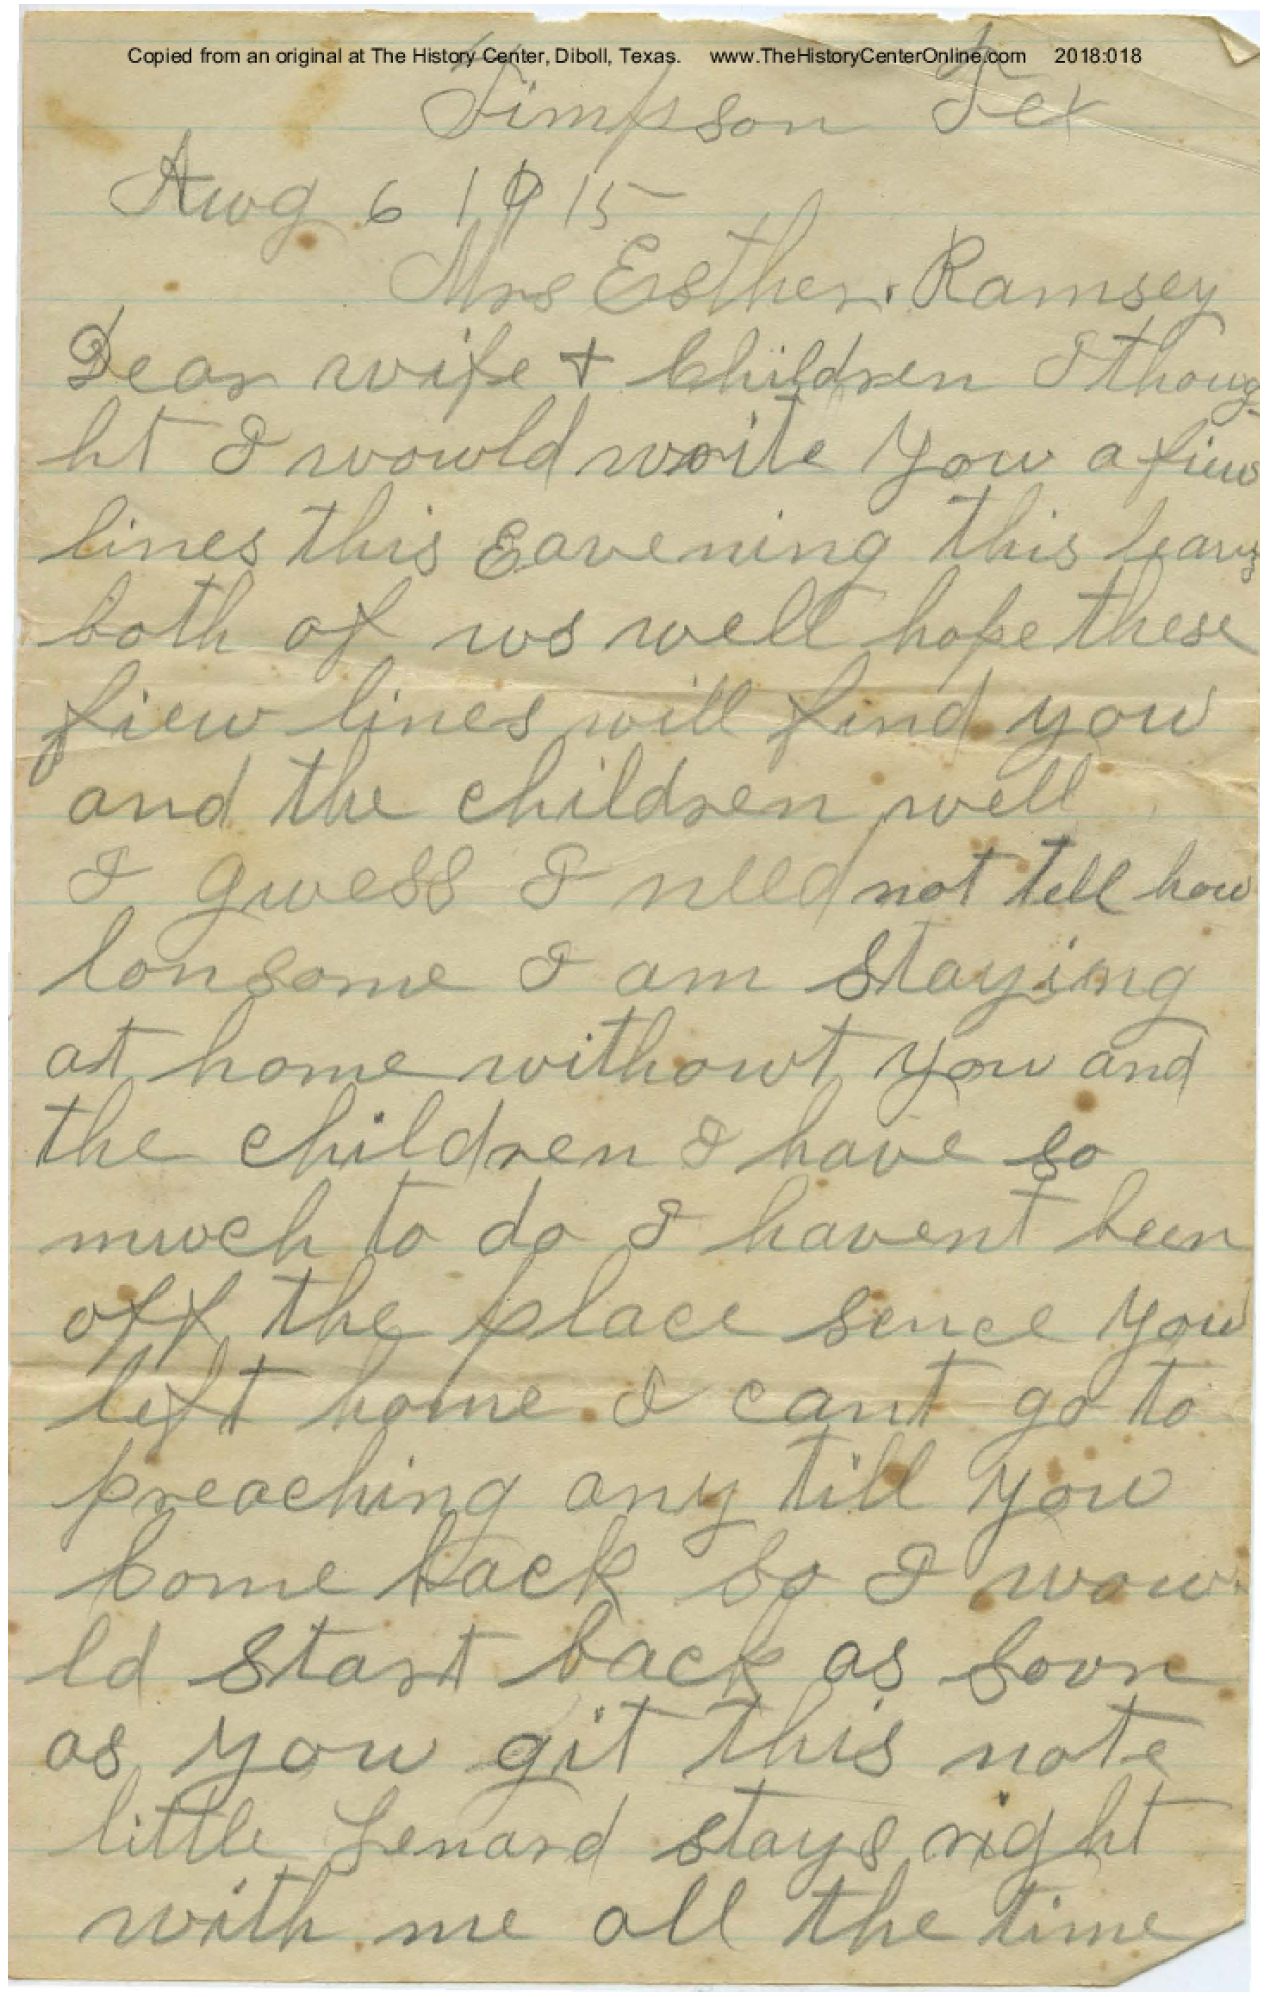 Copied from an original at The History Center, Diboll, Texas. www.TheHistoryCenterOnline.com 2018:018
Timpson Tex
Aug 6 1915
Mrs Esther. Ramsey
Dear wife + children I thoug
ht I would write you a fiew
lines this Eavening this leavs
both of us well hope these
fiew lines will find you
and the children well
I guess I need not tell how
lonsome I am staying
at home without you and
the children I have so
much to do I havent been
off the place sence you
left home I cant go to
preaching any till you
come back so I wou
ld start back as soon
as you git this note
little Lenard stays right
with me all the time